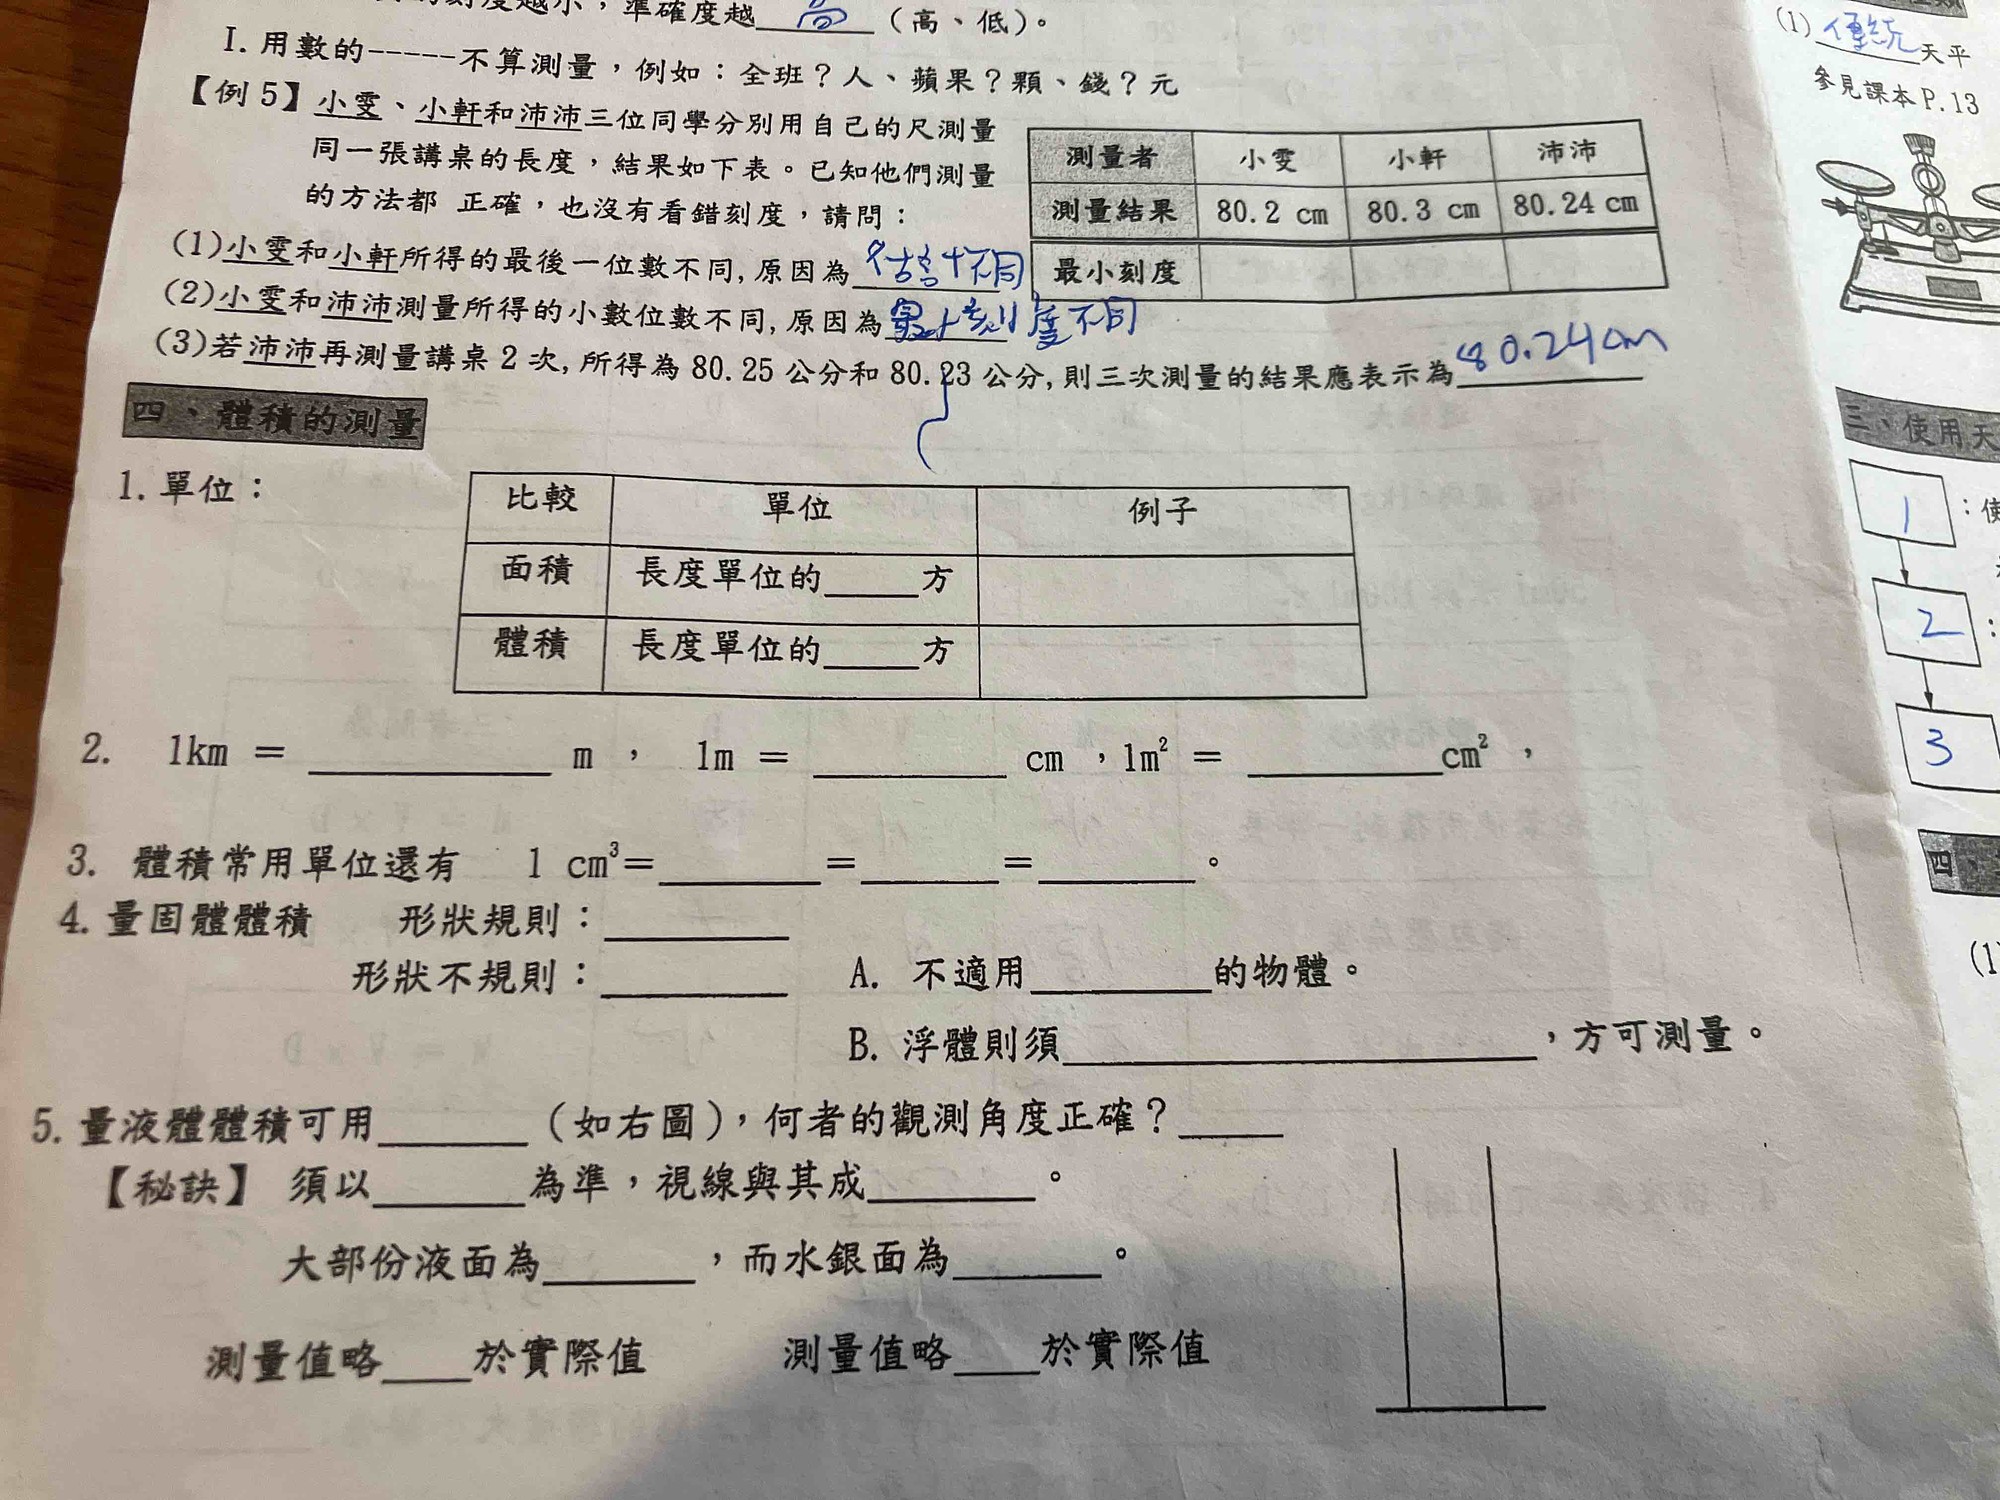 刻度越小，準確度越 高 （高、低）。
I. 用數的------不算測量，例如：全班？人、蘋果？顆、錢？元
【例 5】小雯、小軒和沛沛三位同學分別用自己的尺測量
同一張講桌的長度，結果如下表。已知他們測量
的方法都 正確，也沒有看錯刻度，請問：
測量者 小雯 小軒 沛沛
測量結果 80.2 cm 80.3 cm 80.24 cm
最小刻度
(1)小雯和小軒所得的最後一位數不同,原因為 不同
(2)小雯和沛沛測量所得的小數位數不同,原因為 最小刻度不同
(3)若沛沛再測量講桌 2 次,所得為 80.25 公分和 80.23 公分,則三次測量的結果應表示為 80.24cm
四、體積的測量
1. 單位：
比較 單位 例子
面積 長度單位的____方
體積 長度單位的____方
2. 1km = ________ m ， 1m = ________ cm ，1m² = ________cm² ，
3. 體積常用單位還有 1 cm³=______=______=______。
4. 量固體體積 形狀規則：________
形狀不規則：________ A. 不適用________的物體。
B. 浮體則須________________，方可測量。
5. 量液體體積可用______（如右圖），何者的觀測角度正確？____
【秘訣】 須以______為準，視線與其成______。
大部份液面為______，而水銀面為______。
測量值略____於實際值 測量值略____於實際值
(1) 傳統 天平
參見課本 P.13
三、使用天
1 ：使
2 ：
3
四、
(1